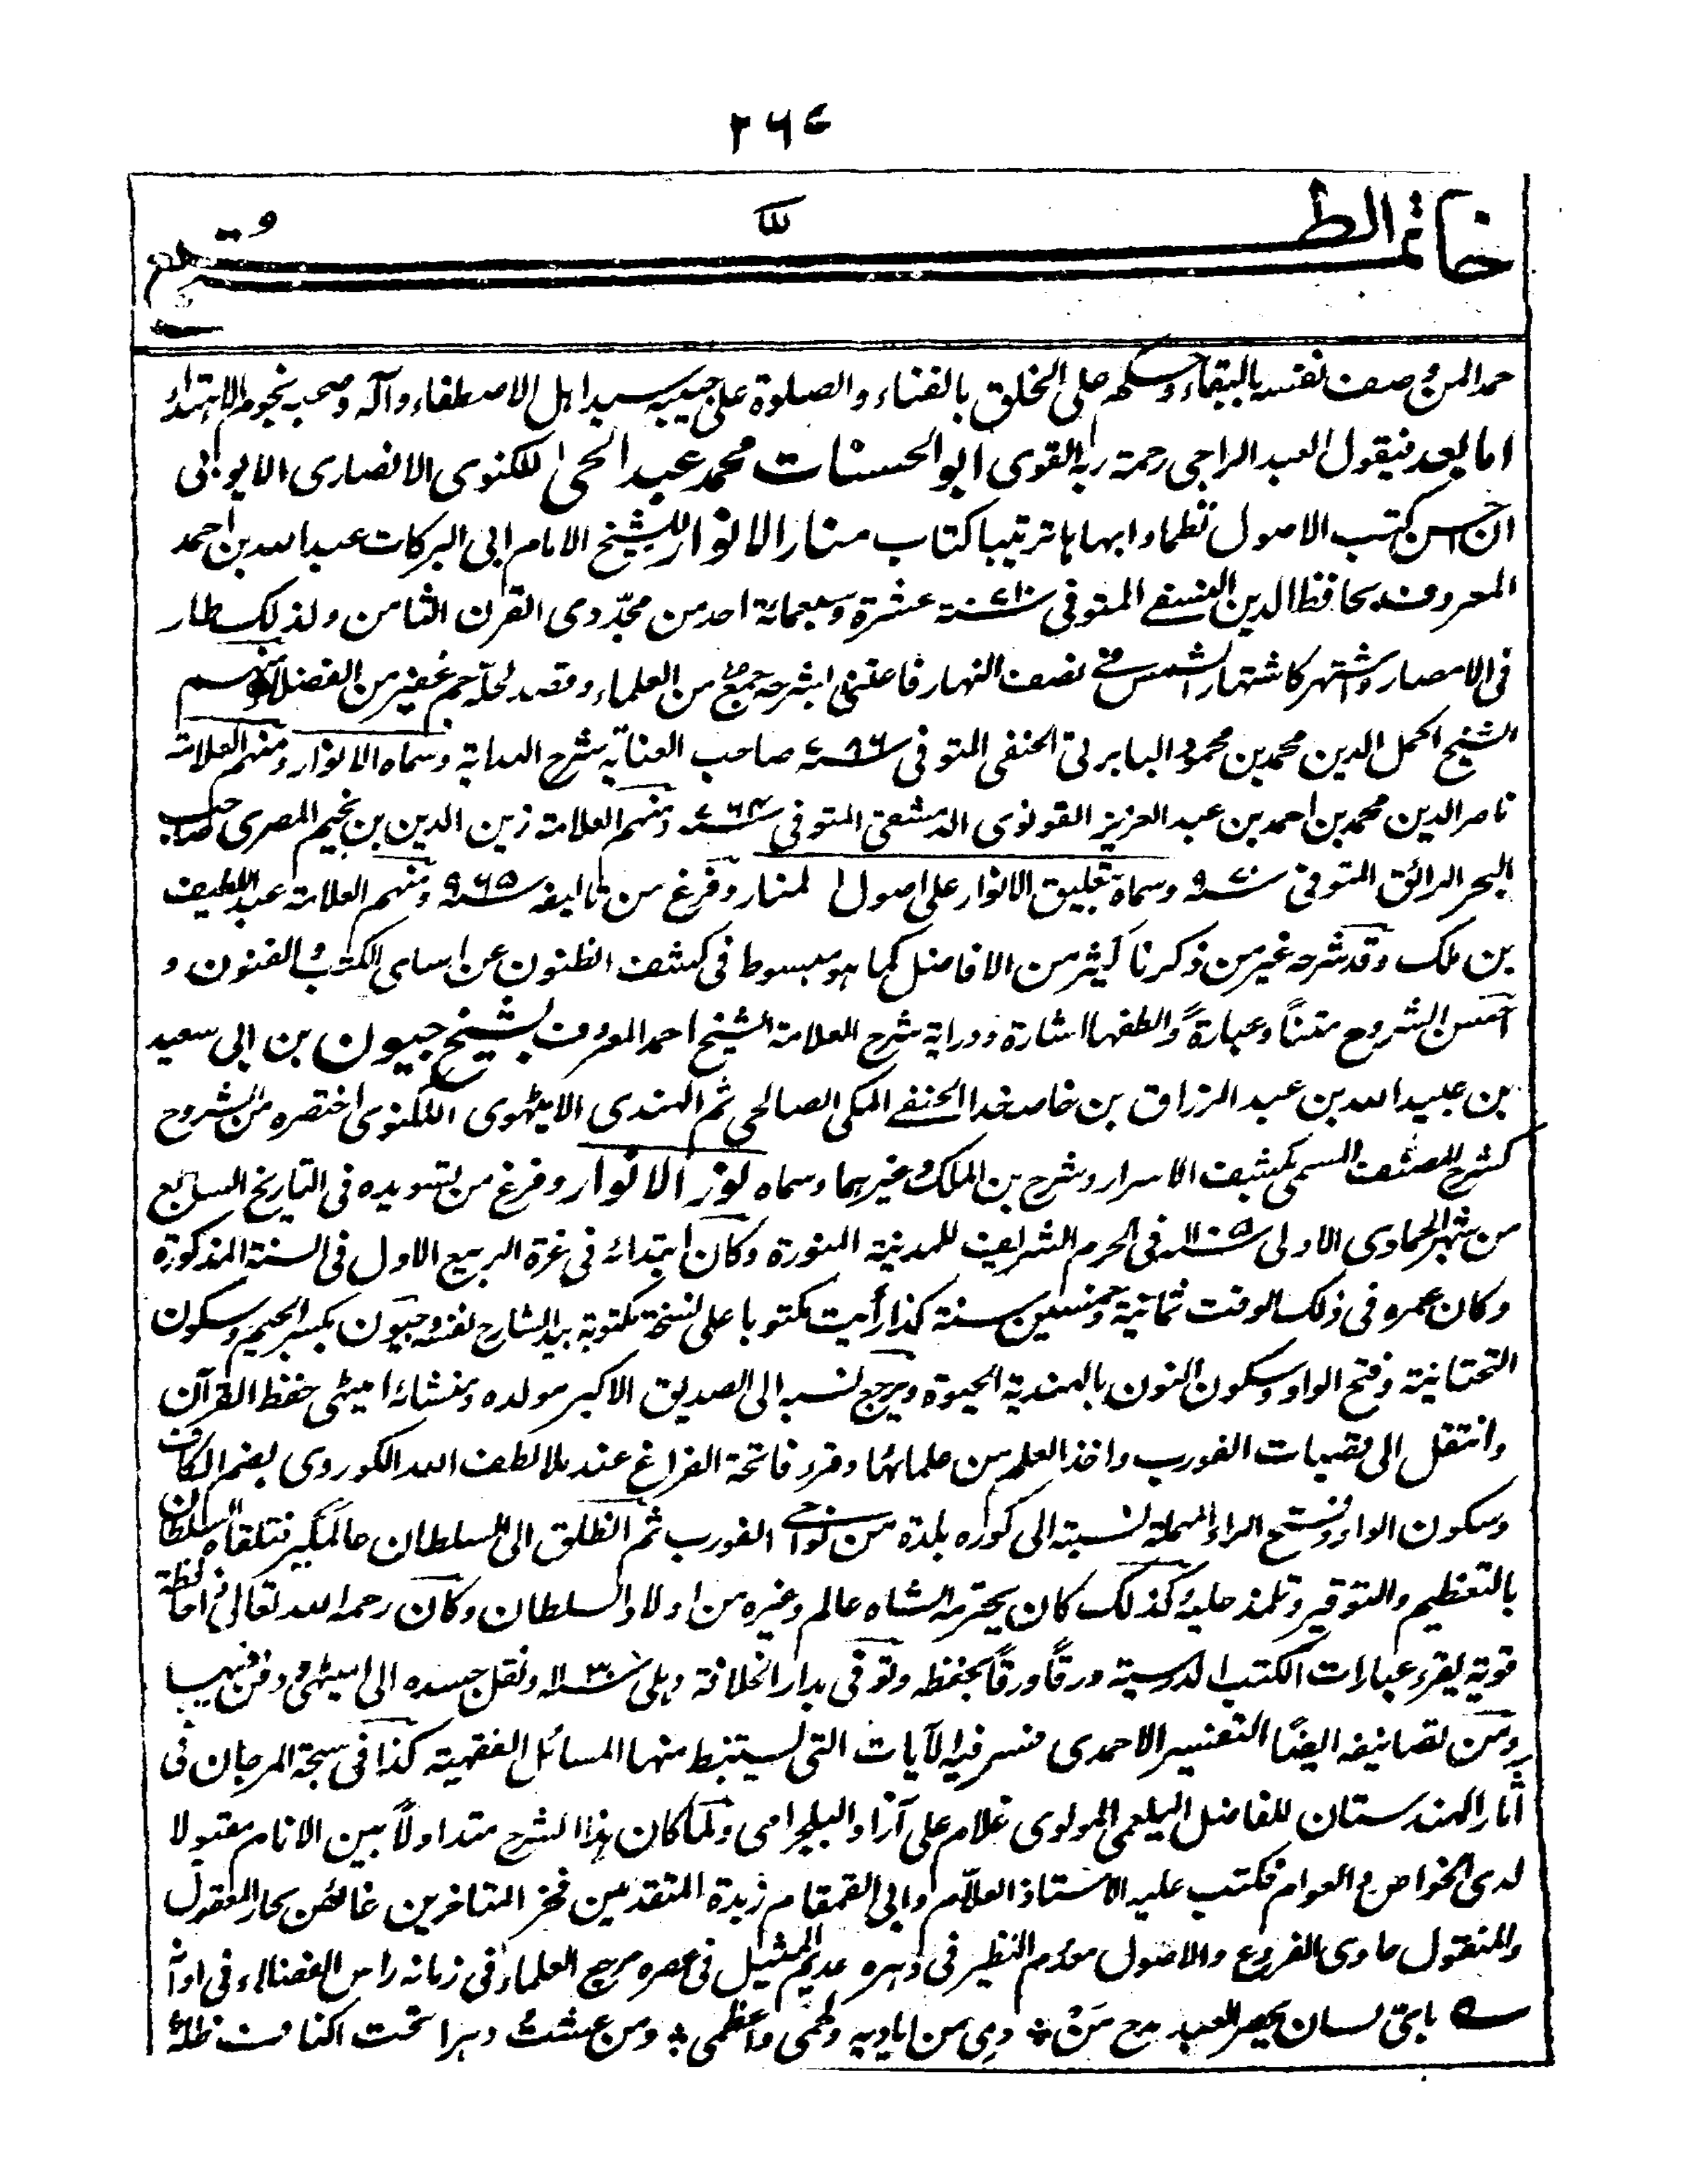 ٢٦٧
خاتمة الطبع
حمدا لمن وصف نفسه بالبقاء وحكم على الخلق بالفناء والصلوة على حبيبه سيد اهل الاصطفاء وآله وصحبه نجوم الاهتداء
اما بعد فيقول العبد الراجي رحمة ربه القوى ابو الحسنات محمد عبد الحى اللكنوى الانصارى الايوبى
ان احسن كتب الاصول نظما وابهاها ترتيبا كتاب منار الانوار للشيخ الامام ابى البركات عبد الله بن احمد
المعروف بحافظ الدين النسفى المتوفى سنة ٧١٠ عشرة وسبعمائة احد من مجدّدى القرن الثامن ولذلك طار
فى الامصار واشتهر كاشتهار الشمس فى نصف النهار فاعتنى بشرحه جمع من العلماء وقصد لحلّه جم غفير من الفضلاء منهم
الشيخ اكمل الدين محمد بن محمود البابرتى الحنفى المتوفى سنة ٧٨٦ صاحب العناية شرح الهداية وسماه الانوار ومنهم العلامة
ناصر الدين محمد بن احمد بن عبد العزيز القونوى الدمشقى المتوفى سنة ٧٦٤ ومنهم العلامة زين الدين بن نجيم المصرى صاحب
البحر الرائق المتوفى سنة ٩٧٠ وسماه تعليق الانوار على اصول المنار وفرغ من تاليفه سنة ٩٦٥ ومنهم العلامة عبد اللطيف
بن ملك وقد شرحه غير من ذكرنا كثير من الافاضل كما هو مبسوط فى كشف الظنون عن اسامى الكتب والفنون و
احسن الشروح متناً وعبارةً والطفها اشارة ودراية شرح العلامة الشيخ احمد المعروف بشيخ جيون بن ابى سعيد
بن عبيد الله بن عبد الرزاق بن خاصه خدا الحنفى المكى الصالحى ثم الهندى الاميٹهوى اللكنوى اختصره من الشروح
كشرح المصنف المسمى بكشف الاسرار وشرح بن الملك وغيرهما وسماه نور الانوار وفرغ من تسويده فى التاريخ السابع
من شهر الجمادى الاولى سنة ١١٠٥ فى الحرم الشريف للمدينة المنورة وكان ابتدائه فى غرة الربيع الاول فى السنة المذكورة
وكان عمره فى ذلك الوقت ثمانية وخمسين سنة كذا رأيت مكتوبا على نسخة مكتوبة بيد الشارح نفسه وجيون بكسر الجيم وسكون
التحتانية وفتح الواو وسكون النون بالهندية الحيوة ويرجع نسبه الى الصديق الاكبر مولده ومنشائه اميٹهى حفظ القرآن
وانتقل الى قصبات الفورب واخذ العلم من علمائها وقرء فاتحة الفراغ عند ملا لطف الله الكوروى بضم الكاف
وسكون الواو وفتح الراء المهملة نسبة الى كوره بلدة من نواحى الفورب ثم انطلق الى السلطان عالمگير فتلقاه السلطان
بالتعظيم والتوقير وتلمذ عليه كذلك كان يحترمه الشاه عالم وغيره من اولاد السلطان وكان رحمه الله تعالى ذا حافظة
قوية يقرء عبارات الكتب الدرسية ورقاً ورقاً بحفظه وتوفى بدار الخلافة دهلى سنة ١١٣٠ ونقل جسده الى اميٹهى ودفن فيها
ومن تصانيفه ايضًا التفسير الاحمدى فسر فيه الآيات التى يستنبط منها المسائل الفقهية كذا فى سبحة المرجان فى
آثار الهندستان للفاضل اليلمعى المولوى غلام على آزاد البلجرامى ولما كان هذا الشرح متداولاً بين الانام مقبولا
لدى الخواص والعوام فكتب عليه الاستاذ العلّام والدى القمقام زبدة المتقدمين فخر المتاخرين غائص بحار المعقول
والمنقول حاوى الفروع والاصول معدوم النظير فى دهره عديم المثيل فى عصره مرجع العلماء فى زمانه راس الفضلاء فى اوانه
باىّ لسان يحصر العبد مدح مَن ٭ دمى من اياديه ولحمى واعظمى ٭ ومن عشتُ دهرا تحت اكناف ظلّه